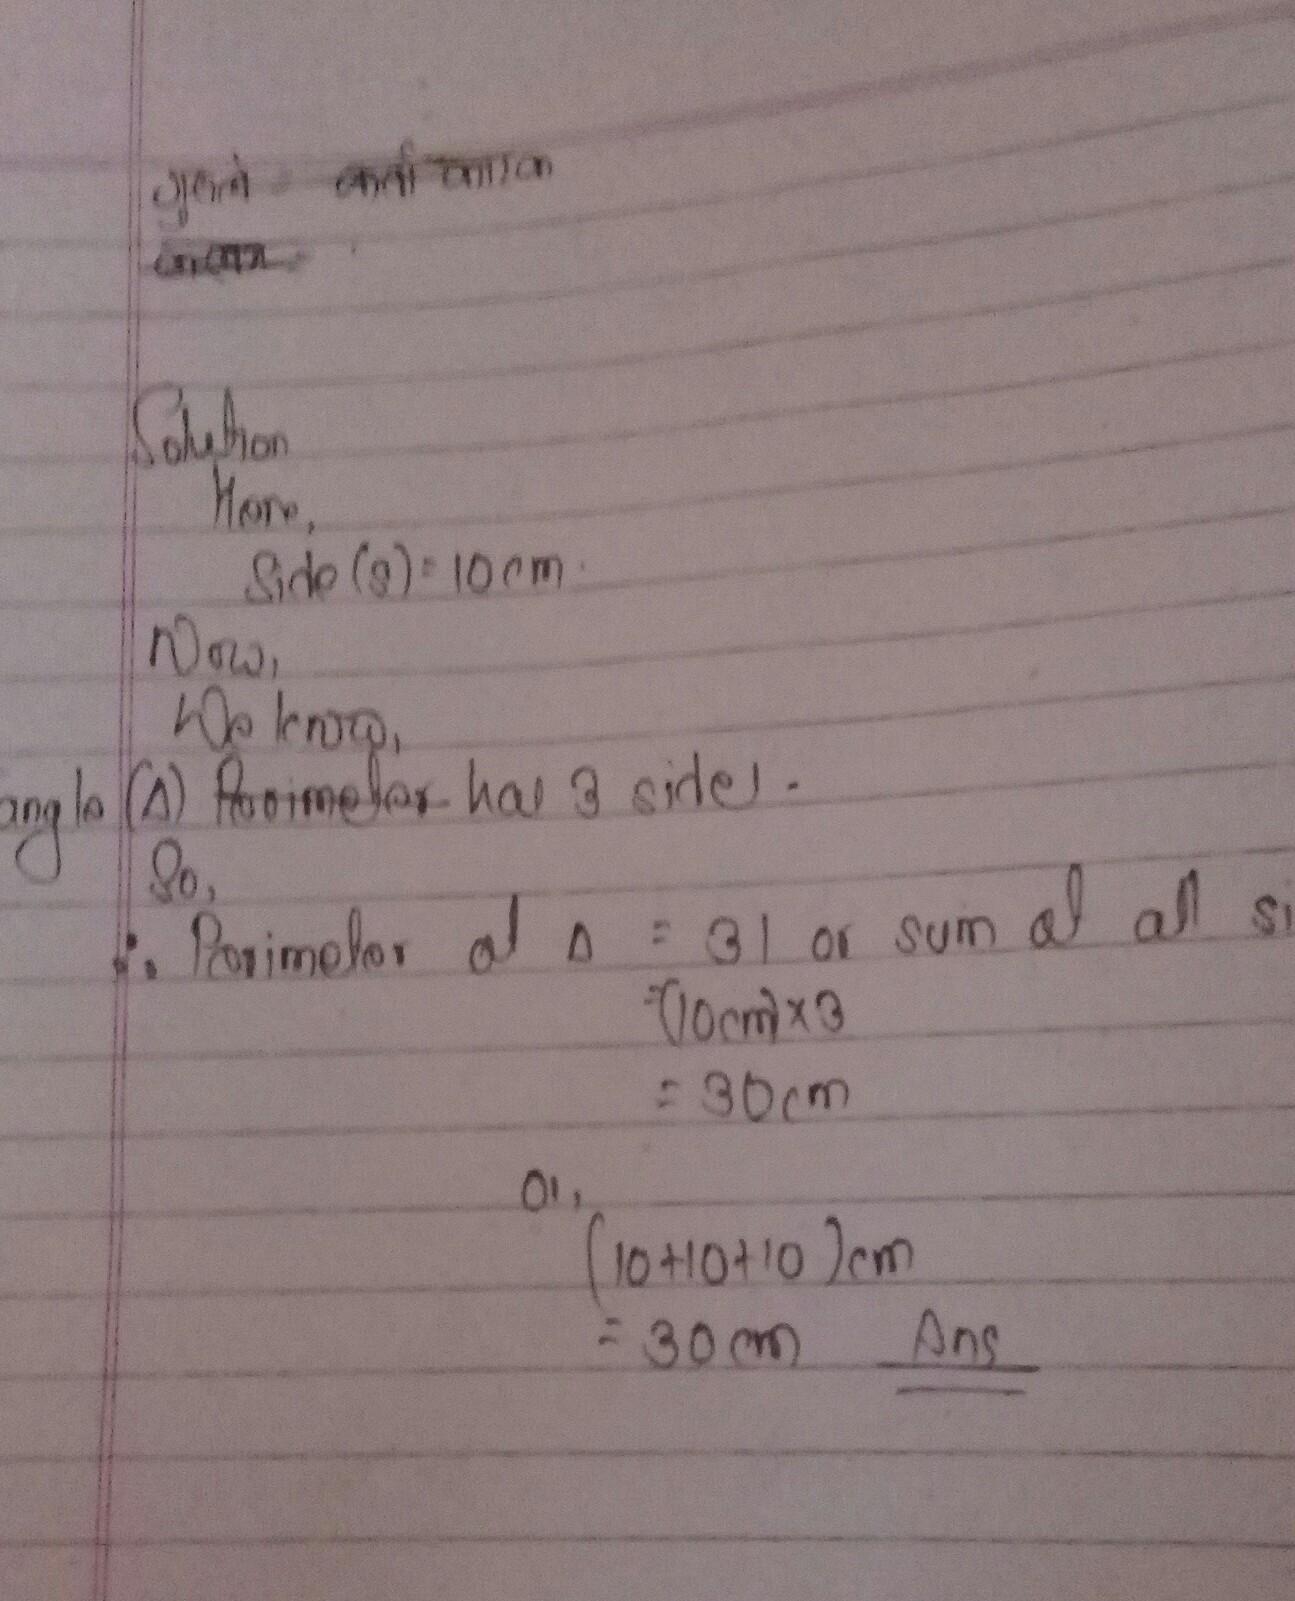 कर्ता कारक
Solution
Here,
Side (s) = 10 cm.
Now,
We know,
angle (Δ) Perimeter has 3 sides.
So,
∴ Perimeter of Δ = 3l or sum of all si
= (10cm) × 3
= 30 cm
or,
(10+10+10) cm
= 30 cm Ans